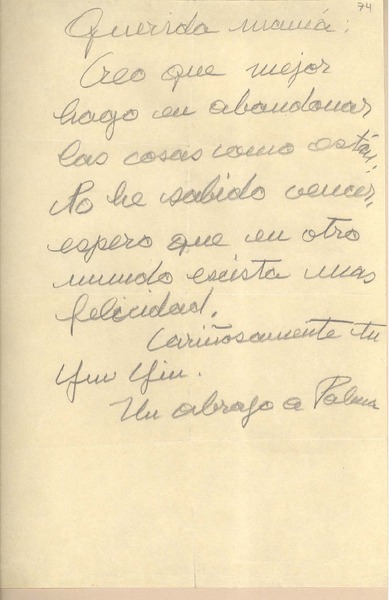 74
Querida mamá:
Creo que mejor
hago en abandonar
las cosas como están.
No he sabido vencer,
espero que en otro
mundo exista mas
felicidad.
Cariñosamente tu
Yin Yin.
Un abrazo a Palma